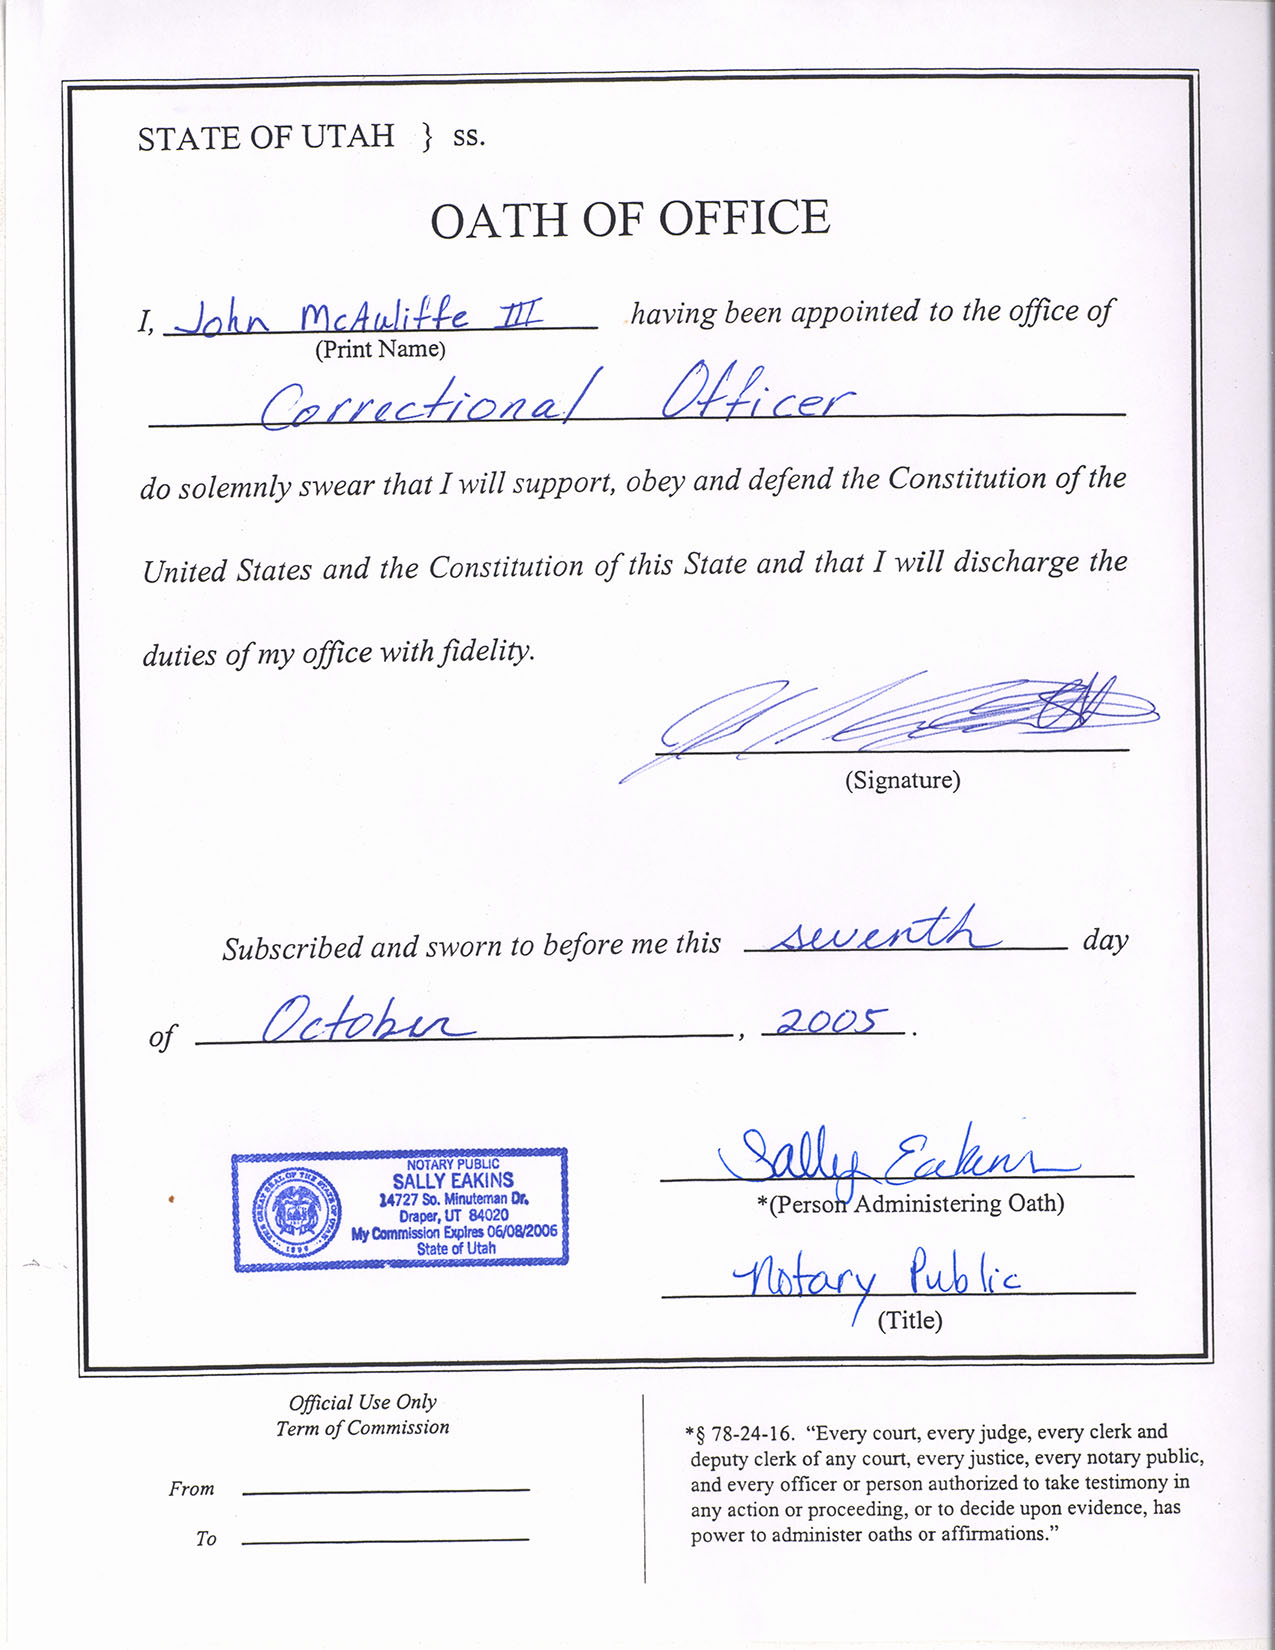 STATE OF UTAH } ss.
OATH OF OFFICE
I, John McAuliffe III having been appointed to the office of
(Print Name)
Correctional Officer
do solemnly swear that I will support, obey and defend the Constitution of the
United States and the Constitution of this State and that I will discharge the
duties of my office with fidelity.
(Signature)
Subscribed and sworn to before me this seventh day
of October, 2005.
NOTARY PUBLIC
SALLY EAKINS
14727 So. Minuteman Dr.
Draper, UT 84020
My Commission Expires 06/08/2006
State of Utah
THE GREAT SEAL OF THE STATE OF UTAH
1896
Sally Eakins
*(Person Administering Oath)
Notary Public
(Title)
Official Use Only
Term of Commission
From
To
*§ 78-24-16. “Every court, every judge, every clerk and
deputy clerk of any court, every justice, every notary public,
and every officer or person authorized to take testimony in
any action or proceeding, or to decide upon evidence, has
power to administer oaths or affirmations.”